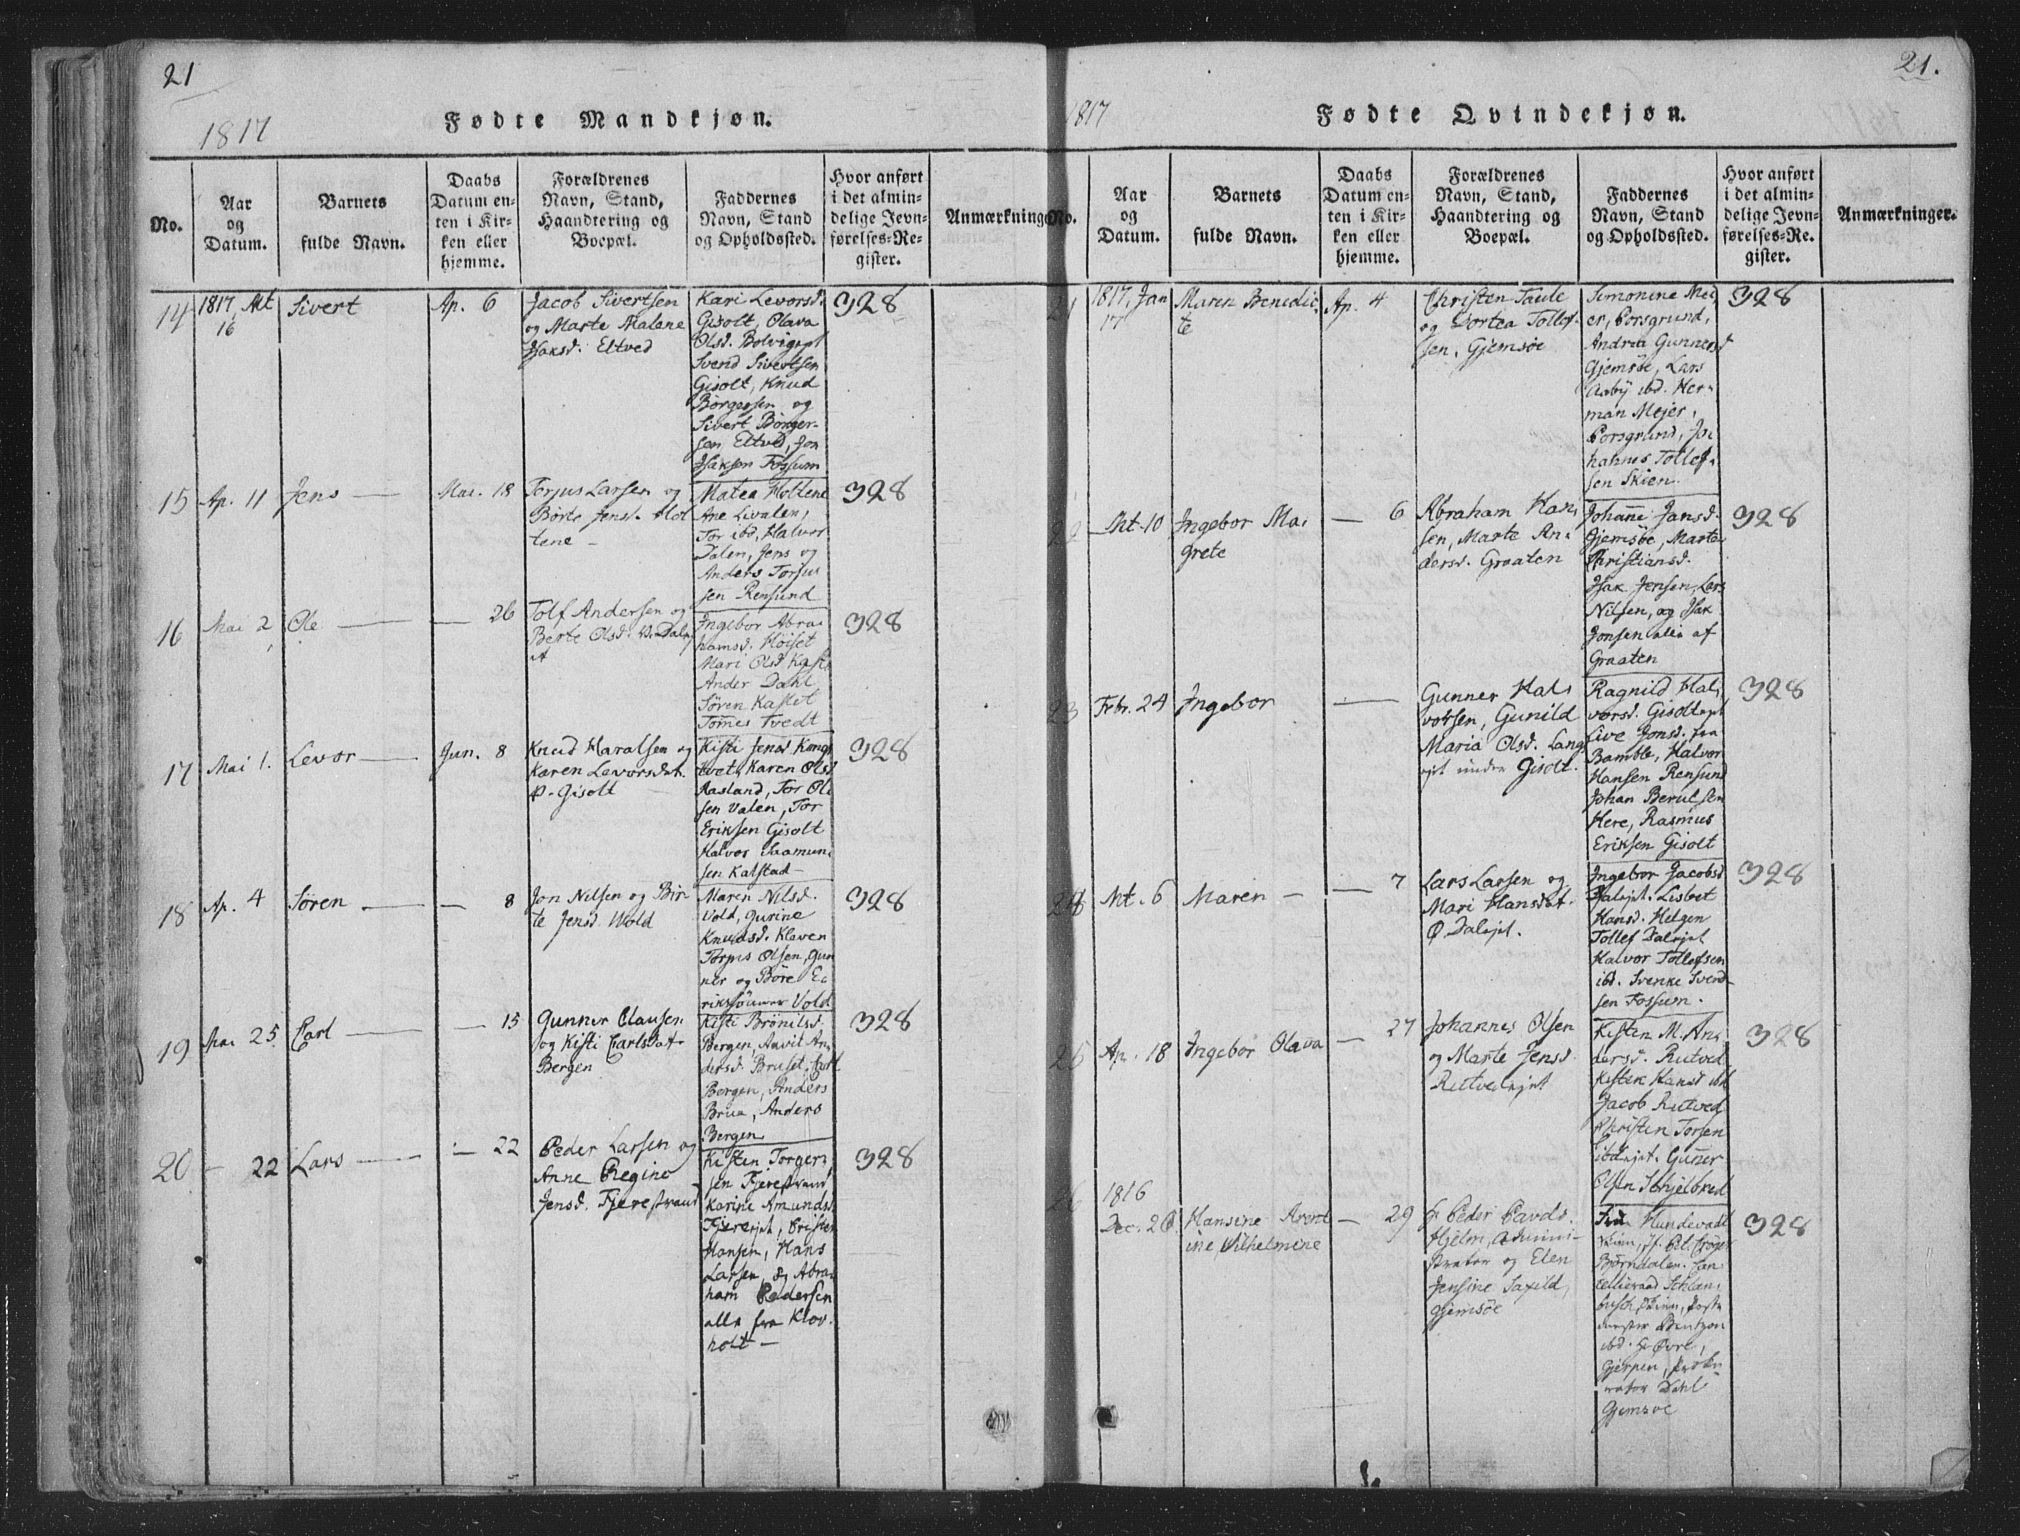 21
1817
Fødte Mandkjøn.
No.
Aar
og
Datum.
Barnets
fulde Navn.
Daabs
Datum en-
ten i Kir-
ken eller
hjemme.
Forældrenes
Navn, Stand,
Haandtering og
Boepæl.
Faddernes
Navn, Stand
og Opholdssted.
Hvor anført
i det almin-
delige Jevn-
førelses-Re-
gister.
Anmærkninger
14
1817, Mt
16
Sivert
Ap. 6
Jacob Sivertsen
og Marte Malene
Isaksd. Eltved
Kari Levorsd.
Gisolt, Olava
Olsd. Bolvigept
Svend Sivertsen
Gisolt, Knud
Børgersen og
Sivert Børger-
sen Eltved, Jon
Isaksen Fossum
328
15
Ap. 11
Jens —
Mai. 18
Torjus Larsen og
Børte Jensd. Hol
tene —
Matea Holtene
Ane Livalen,
Tor ibd, Halvor
Dalen, Jens og
Anders Torjus
sen Rensund
328
16
Mai 2
Ole —
— 26
Tolf Andersen og
Berte Olsd.
Ingebor Abra
hamsd. Høiset
Mari Olsd
Ander Dahl
Søren Kastet
Tomes Tvedt
328
17
Mai 1.
Levor —
Jun. 8
Knud Haralsen og
Karen Levorsdat.
P. Gisolt
Kisti Jensd Kongs
tvet, Karen Olsd
Aasland, Tor Ol
sen Valen, Tor
Eriksen Gisolt
Halvor Saamun,
sen Kalstad —
328
18
Ap. 4
Søren —
— 8
Jon Nilsen og Bir-
te Jensd Wold
Maren Nilsd.
Vold, Gurine
Knudsd. Kleven
Torjus Olsen, Gun
ner og Børe E.
riksønner Vold
328
19
Mai 25
Carl —
— 15
Gunner Clausen
og Kisti Carlsdat.
Bergen
Kisti Brønilsd.
Bergen, Aavit An
dersd. Bruset, Carl
Bergen, Anders
Brua, Anders
Bergen
328
20
— 22
Lars —
— 22
Peder Larsen og
Anne Regine
Jensd. Fjerestrand
Kisten Torger,
sen Fjerestrand
Karine Amundsd.
Fjereejet, Cristen
Hansen, Hans
Larsen, og Abra
ham Pedersen
alle fra Klov.
holt —
328
21.
1817
Fødte Qvindekjøn.
No.
Aar
og
Datum.
Barnets
fulde Navn.
Daabs
Datum en-
ten i Kir-
ken eller
hjemme.
Forældrenes
Navn, Stand,
Haandtering og
Boepæl.
Faddernes
Navn, Stand
og Opholdssted.
Hvor anført
i det almin-
delige Jevn-
førelses-Re-
gister.
Anmærkninger.
21
1817, Jan
17
Maren Benedic-
te
Ap. 4
Christen Taule
og Dortea Tollef-
sen, Gjemsøe
Simonine Mei
er, Porsgrund,
Andrea Gunnersd
Gjemsøe, Lars
Aaby ibd. Her-
man Mejer,
Porsgrund, Jo,
hannes Tollef-
sen Skien.
328
22
Mt. 10
Ingebor Ma,
grete
— 6
Abraham Han,
sen, Marte An,
dersd. Graaten
Johanne Jansd.
Gjemsøe, Marte
Christiansd.
Isak Jensen, Lars
Nilsen, og Isak
Jonsen alle af
Graaten
328
23
Febr. 24
Ingebor
—
Gunner Hals
vorsen, Gunild
Maria Olsd. Lang
ejet under Gisolt.
Ragnild Hal,
vorsd. Gisoltept
Live Jonsd. fra
Bamble, Halvor
Hansen Rensund
Johan Berulsen
Here, Rasmus
Eriksen Gisolt
328
24
Mt. 6
Maren —
— 7
Lars Larsen og
Mari Hansdat.
Ø. Dalejet.
Ingebor Jacobsd
Dalejet. Lisbet
Hansd. Helgen
Tollef Dalejet
Halvor Tollefsen
ibd. Svenke Svend-
sen Fossum.
328
25
Ap. 18
Ingebor Olava
— 27
Johannes Olsen
og Marte Jensd.
Rutvedejet
Kisten M. An,
dersd. Rutved
Kisten Hansd ibd
Jacob Rutved
Christen Torsen
ibd ejet. Gunner
Olsen Schjelbred
328
26
1816
Dec. 26
Hansine Arent
ine Vilhelmine
— 29
Hr Peder Pavels.
Hjelm, Admini-
strator og Elen
Jensine Saxild,
Gjemsøe
Fru Hundevadt
Skien, Jf. Bet. Crøger
Bjørndalen. Can
celliraad Schlan,
busch Skien, Post
mester Bentzon
ibd. Hr Øvre,
Gjerpen, Proku
rator Dahl
Gjemsøe
328